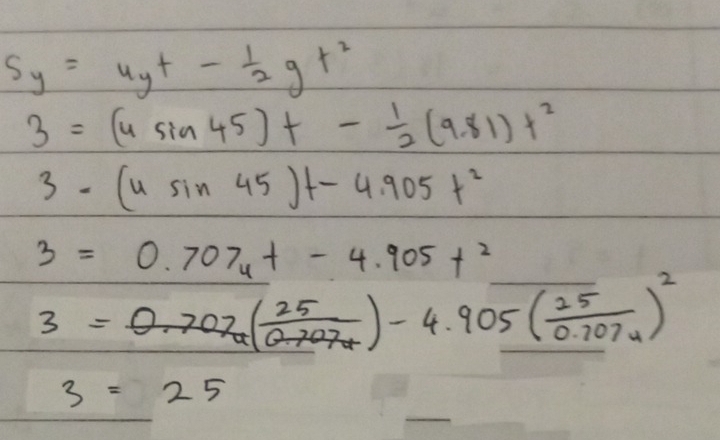 Sy = uyt - 1/2 gt²
3 = (u sin 45)t - 1/2 (9.81)t²
3 - (u sin 45)t - 4.905t²
3 = 0.707ut - 4.905t²
3 = 0.707u(25/0.707u) - 4.905(25/0.707u)²
3 = 25